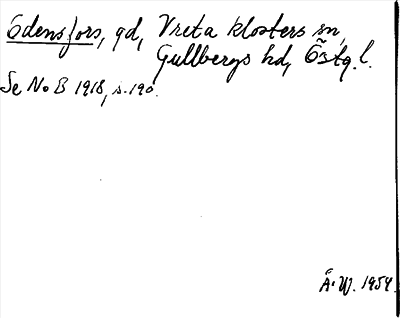 Edensfors, gd, Vreta klosters sn,
Gullbergs hd, Östg. l.
Se NoB 1918, s. 190.
Å. W. 1954.